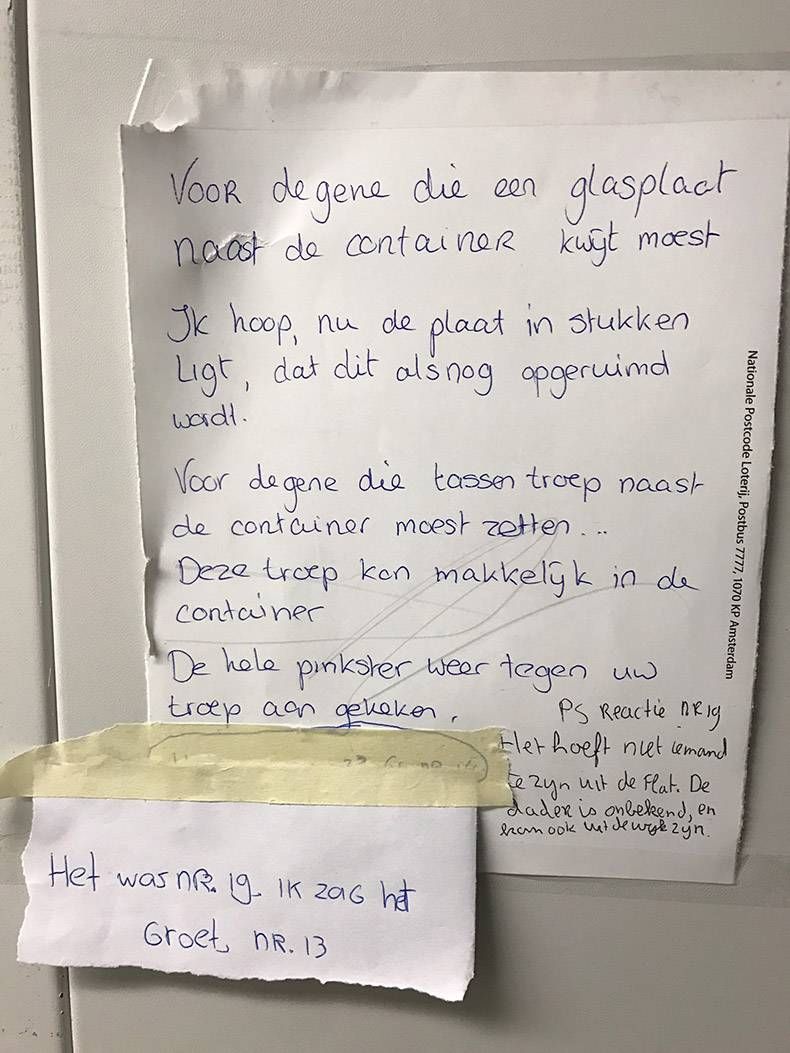 Voor degene die een glasplaat
naast de container kwijt moest
Ik hoop, nu de plaat in stukken
Ligt, dat dit alsnog opgeruimd
wordt.
Voor degene die tassen troep naast
de container moest zetten...
Deze troep kan makkelijk in de
container
De hele pinkster weer tegen uw
troep aan gekeken.
PS Reactie NR 19
Het hoeft niet iemand
te zijn uit de Flat. De
dader is onbekend, en
kan ook uit de wijk zijn.
Het was NR. 19. IK ZAG het
Groet, NR. 13
Nationale Postcode Loterij, Postbus 7777, 1070 KP Amsterdam